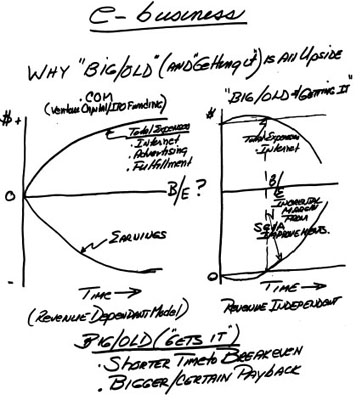 e-business
WHY "BIG/OLD" (AND "GETTING IT") IS AN UPSIDE
.COM
(VENTURE CAPITAL/IPO FUNDING)
"BIG/OLD & GETTING IT"
$ +
Total Expenses
. Internet
. Advertising
. Fulfillment
$
Total Expenses
Internet
0
B/E ?
B/E
INCREMENTAL
MARGIN
FROM
IMPROVEMENTS.
EARNINGS
-
0
TIME →
TIME →
(REVENUE DEPENDANT MODEL)
REVENUE INDEPENDENT
BIG/OLD ("GETS IT")
. SHORTER TIME TO BREAKEVEN
. BIGGER/CERTAIN PAYBACK